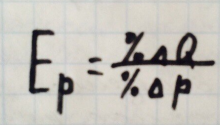 Ep = %ΔQ / %Δp